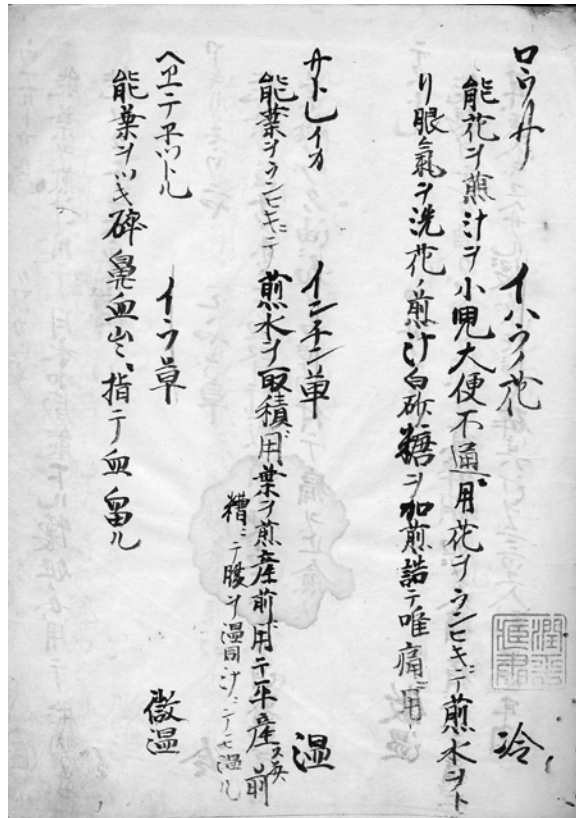 ロウサ イハラノ花 冷
能花ヲ煎汁ヲ小児大便不通ニ用花ヲランヒキニテ煎水ヲト
リ眼氣ヲ洗花ノ煎汁白砂糖ヲ加煎詰テ唯痛ニ用
サトレイカ インチン草 温
能葉ヲランヒキニテ煎水ヲ取積ニ用葉ヲ煎産前ニ用テ平産ス
糟ニテ腹ヲ温同汁ニテモ温ル
ヘエテ子ツトル イラ草 微温
能葉ヲツキ碑鼻血出ニ指テ血留ル